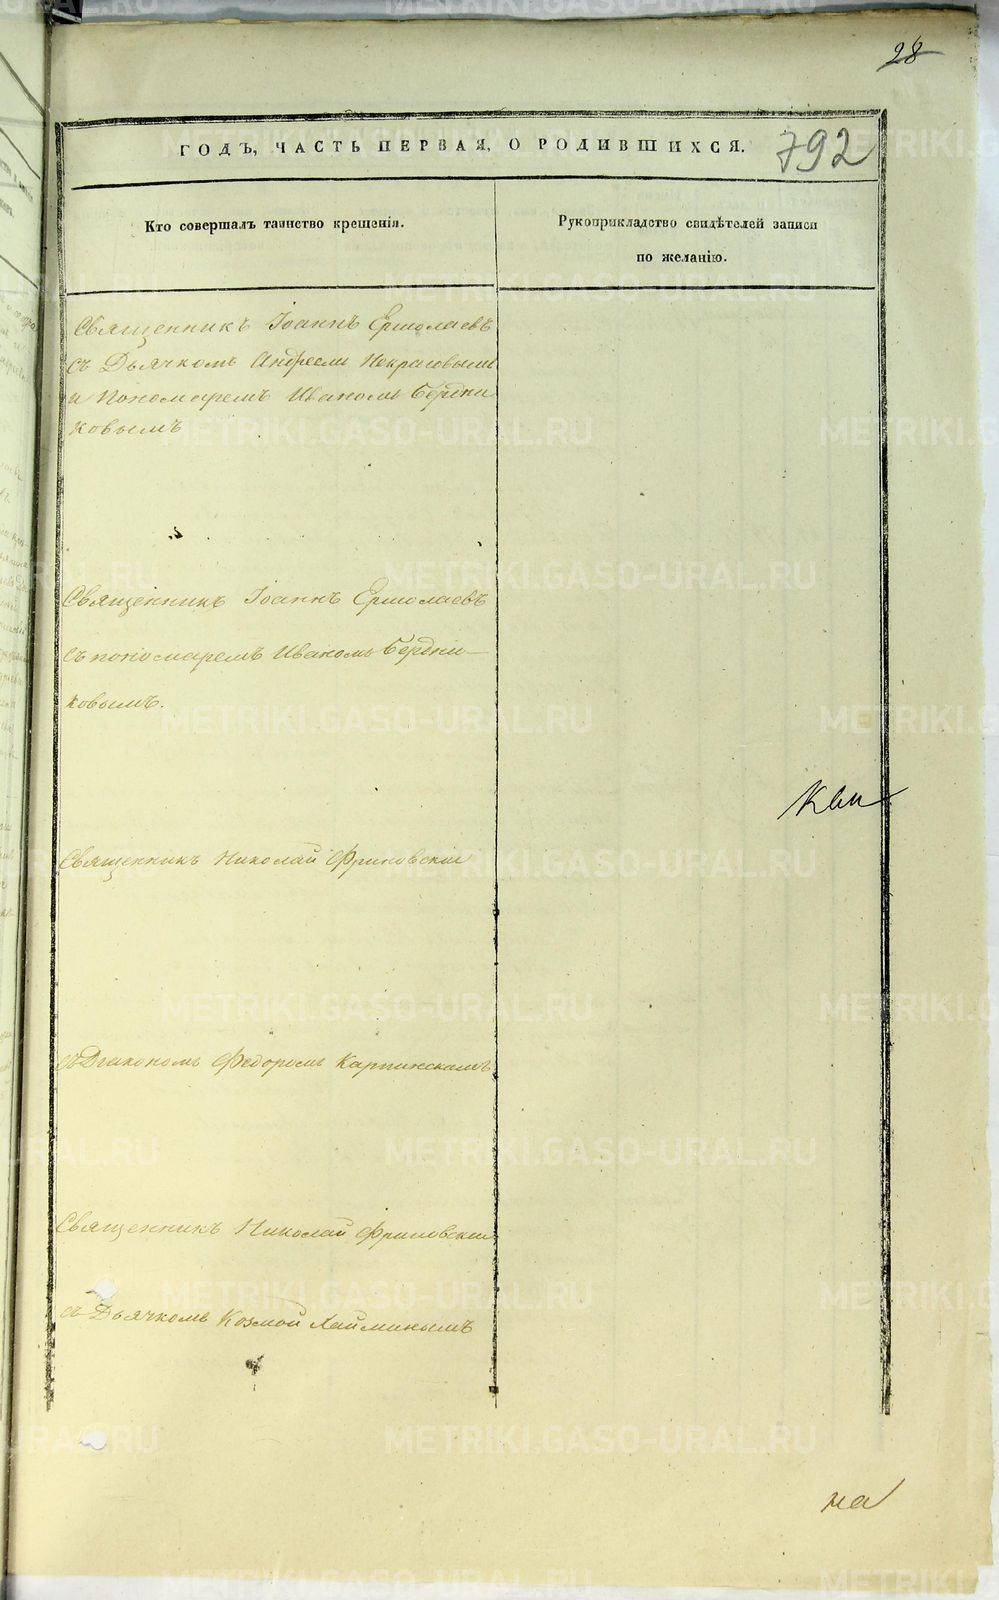 28
ГОДЪ, ЧАСТЬ ПЕРВАЯ, О РОДИВШИХСЯ.
792
Кто совершалъ таинство крещенія.
Рукоприкладство свидѣтелей записи
по желанію.
Священникъ Іоаннъ Ермолаевъ
съ Дьячкомъ Андреемъ Некрасовымъ
и Пономаремъ Иваномъ Бердни
ковымъ
Священникъ Іоаннъ Ермолаевъ
съ пономаремъ Иваномъ Бердни-
ковымъ.
Священникъ Николай
съ Діакономъ Федоромъ Карпинскимъ
Священникъ Николай
съ Дьячкомъ Козмой
на
METRIKI.GASO-URAL.RU